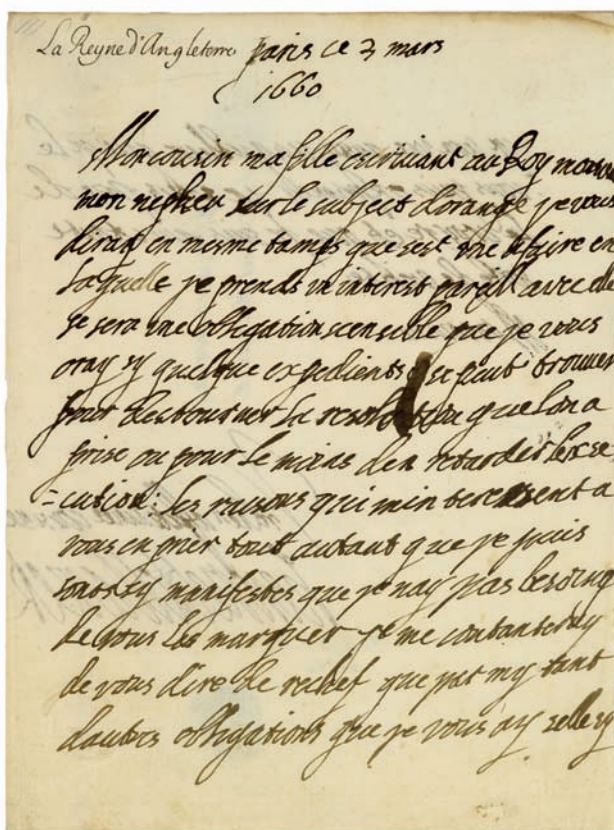 La Reyne d'Angleterre paris ce 3 mars
1660
Mon cousin ma fille escrivant au Roy monsr
mon nepheu sur le subject d'orange je vous
diray en mesme tamps que sest une afaire en
laquelle je prends un interest pareill avec elle
se sera une obligation scensible que je vous
oray sy quelque expedients se peut trouver
pour destourner la resolution que lon a
prise ou pour le moins den retarder lexse
=cution: les raisons qui minteressent a
vous en prier tout autant que je puis
sont sy manifestes que je nay pas besoing
de vous les marquer je me contanteray
de vous dire de rechef que parmy tant
dautres obligations que je vous ay selle sy